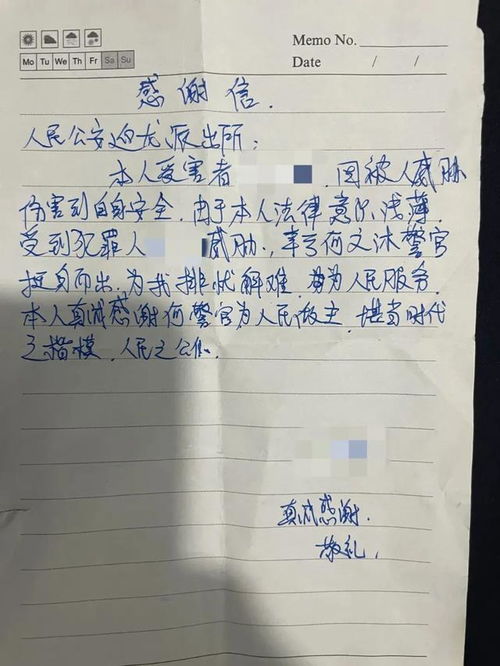 Memo No.
Mo Tu We Th Fr Sa Su
Date / /
感谢信.
人民公安迎龙派出所:
本人受害者 因被人威胁
伤害到自身安全,由于本人法律意识浅薄,
受到犯罪人 威胁,幸亏何文沐警官
挺身而出,为我排忧解难,为人民服务,
本人真诚感谢何警官为人民做主,堪当时代
之楷模,人民之公仆.
真诚感谢.
敬礼,